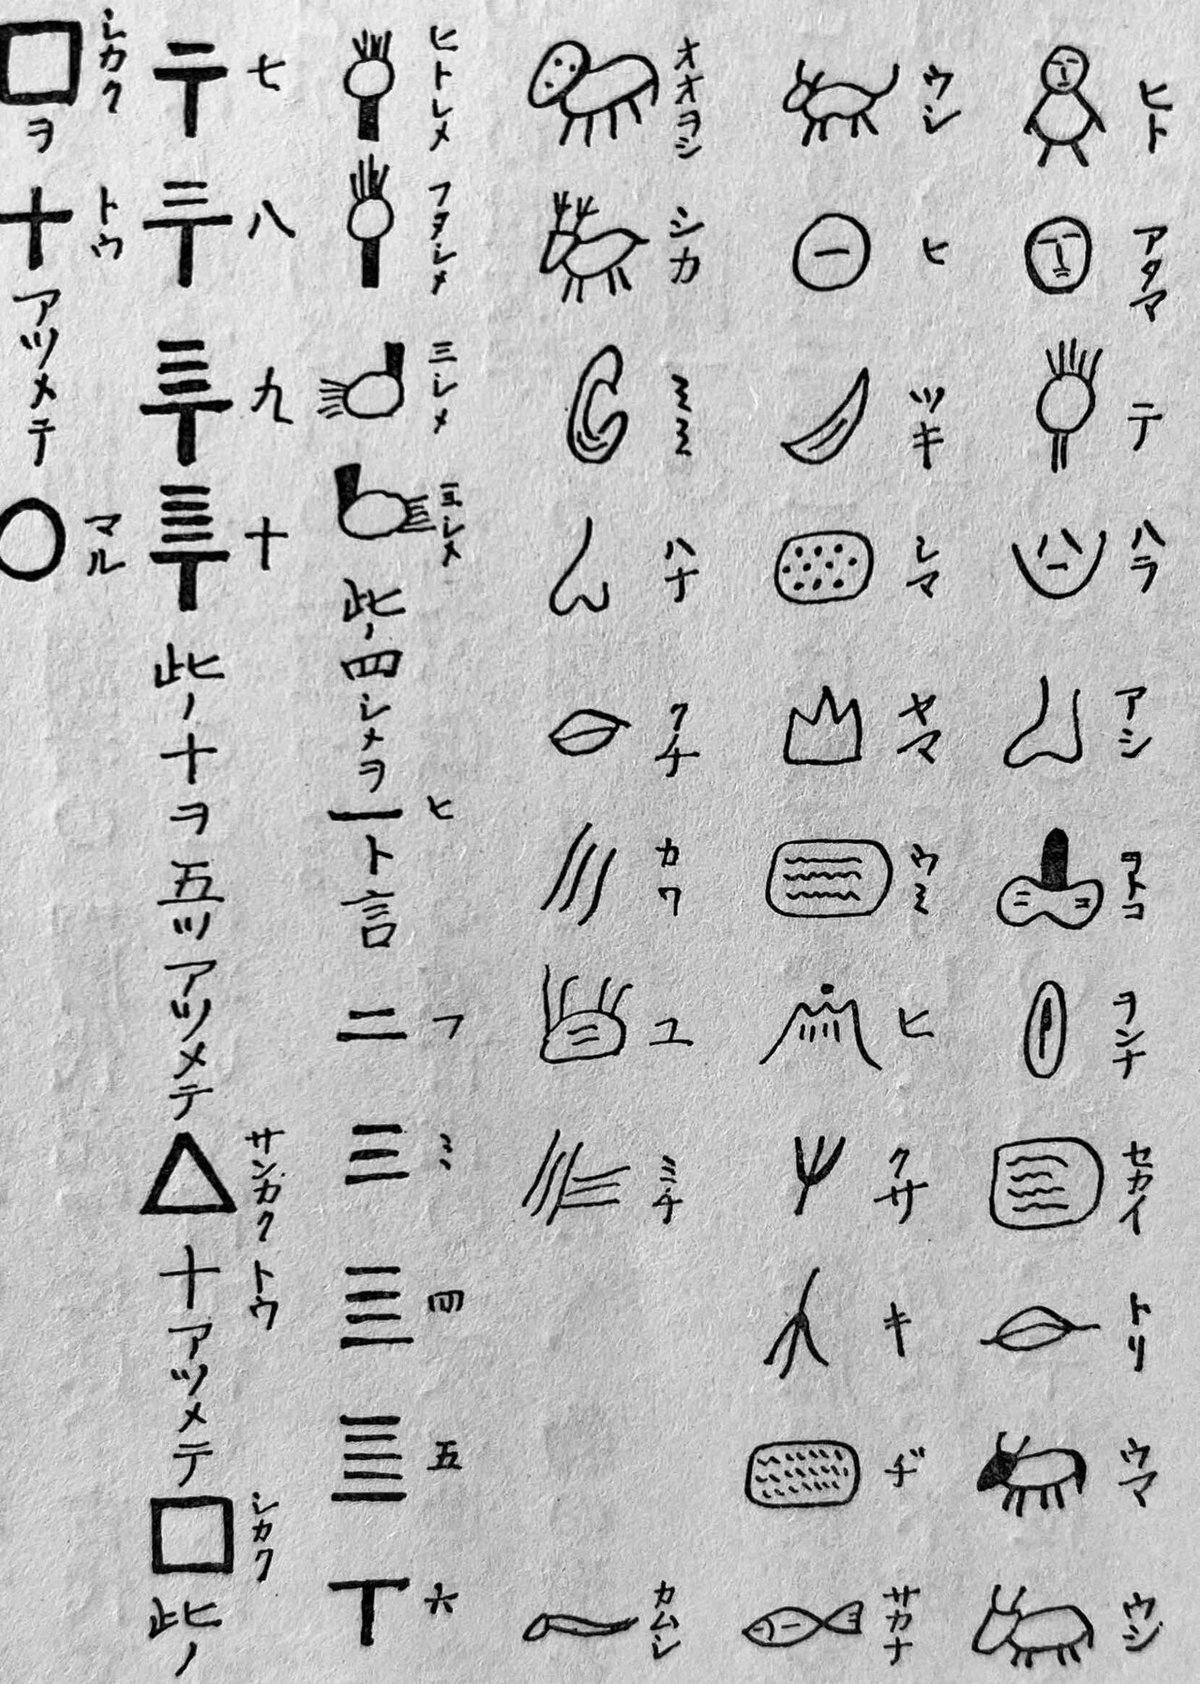 ヒト
アタマ
テ
ハラ
アシ
ヲトコ
ヲンナ
セカイ
トリ
ウマ
ウジ
ウシ
ヒ
ツキ
シマ
ヤマ
ウミ
ヒ
クサ
キ
ヂ
サカナ
オオヲシ
シカ
ミミ
ハナ
クチ
カワ
ユ
ミチ
カムシ
ヒトシメ
フタシメ
三シメ
四シメ
此ノ四シメヲ一ト言
ヒ
二
フ
三
ミ
四
五
六
七
八
九
十
此ノ十ヲ五ツアツメテ△十アツメテ□此ノ
サンカク
トウ
シカク
□ヲ十アツメテ○
シカク
トウ
マル